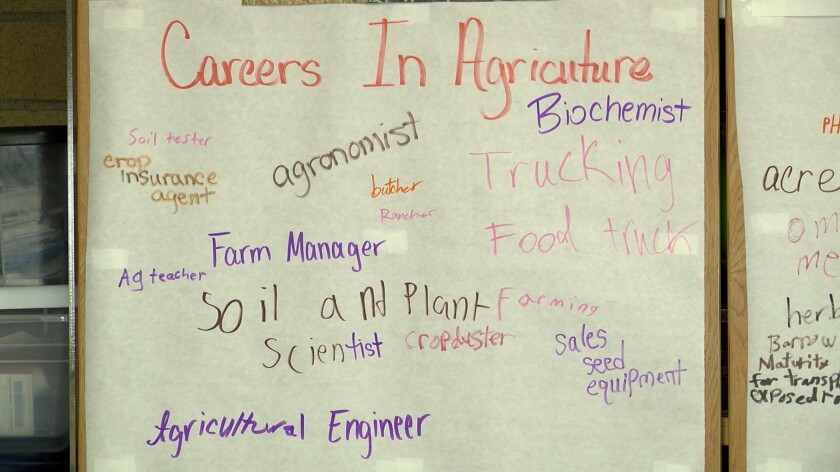 Careers In Agricuture
Biochemist
Soil tester
crop
insurance
agent
agronomist
butcher
Rancher
Trucking
Food truck
Farm Manager
Ag teacher
Soil and Plant
Scientist
Farming
cropduster
sales
seed
equipment
Agricultural Engineer
PH
acre
om
me
herb
Barrow
Maturity
for transpl
exposed ro